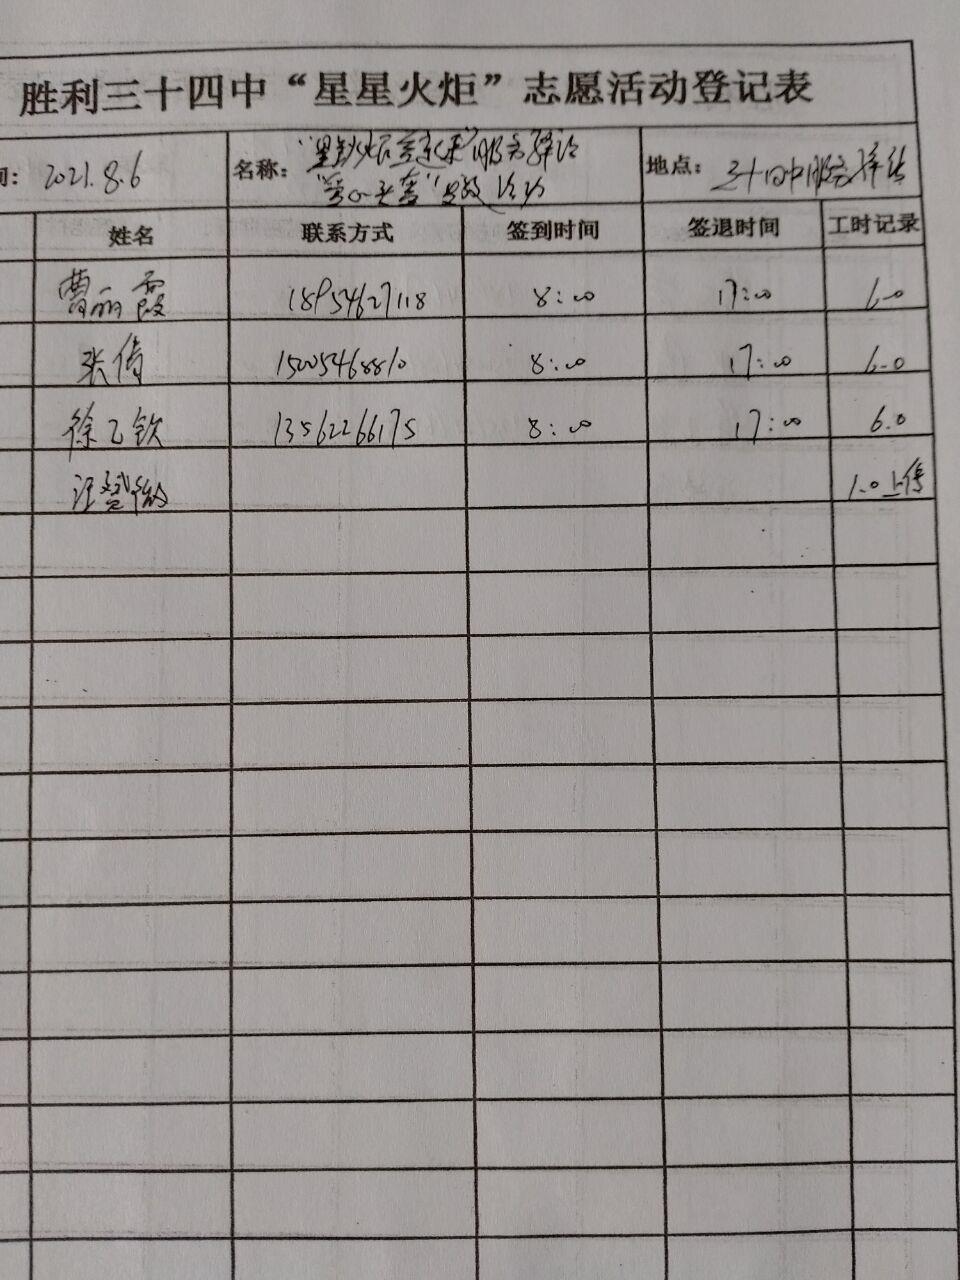 胜利三十四中“星星火炬”志愿活动登记表
间: 2021.8.6 名称: 服务 地点: 三十四中服务
姓名 联系方式 签到时间 签退时间 工时记录
曹丽霞 18954627118 8:00 17:00 6.0
张倩 15005468810 8:00 17:00 6.0
徐乙钦 13562266175 8:00 17:00 6.0
汪 1.0上传